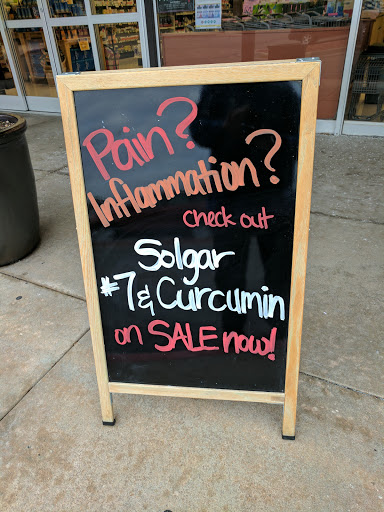 Pain?
Inflammation?
check out
Solgar
#7 & Curcumin
on SALE now!